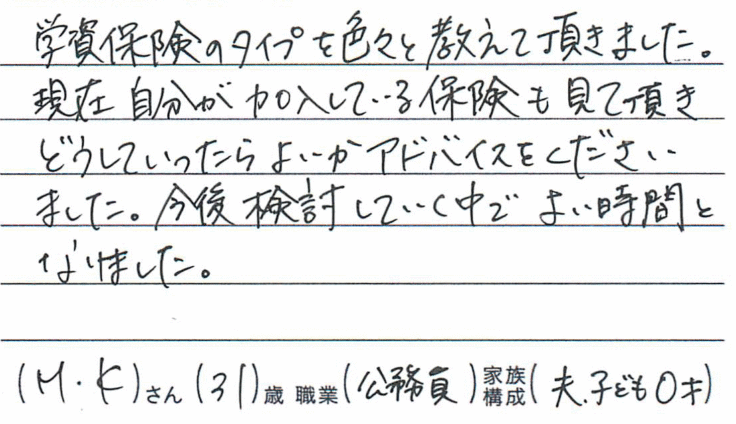 学資保険のタイプを色々と教えて頂きました。
現在自分が加入している保険も見て頂き
どうしていったらよいかアドバイスをください
ました。今後検討していく中でよい時間と
なりました。
(M・K)さん(31)歳 職業(公務員)家族構成(夫.子ども0才)